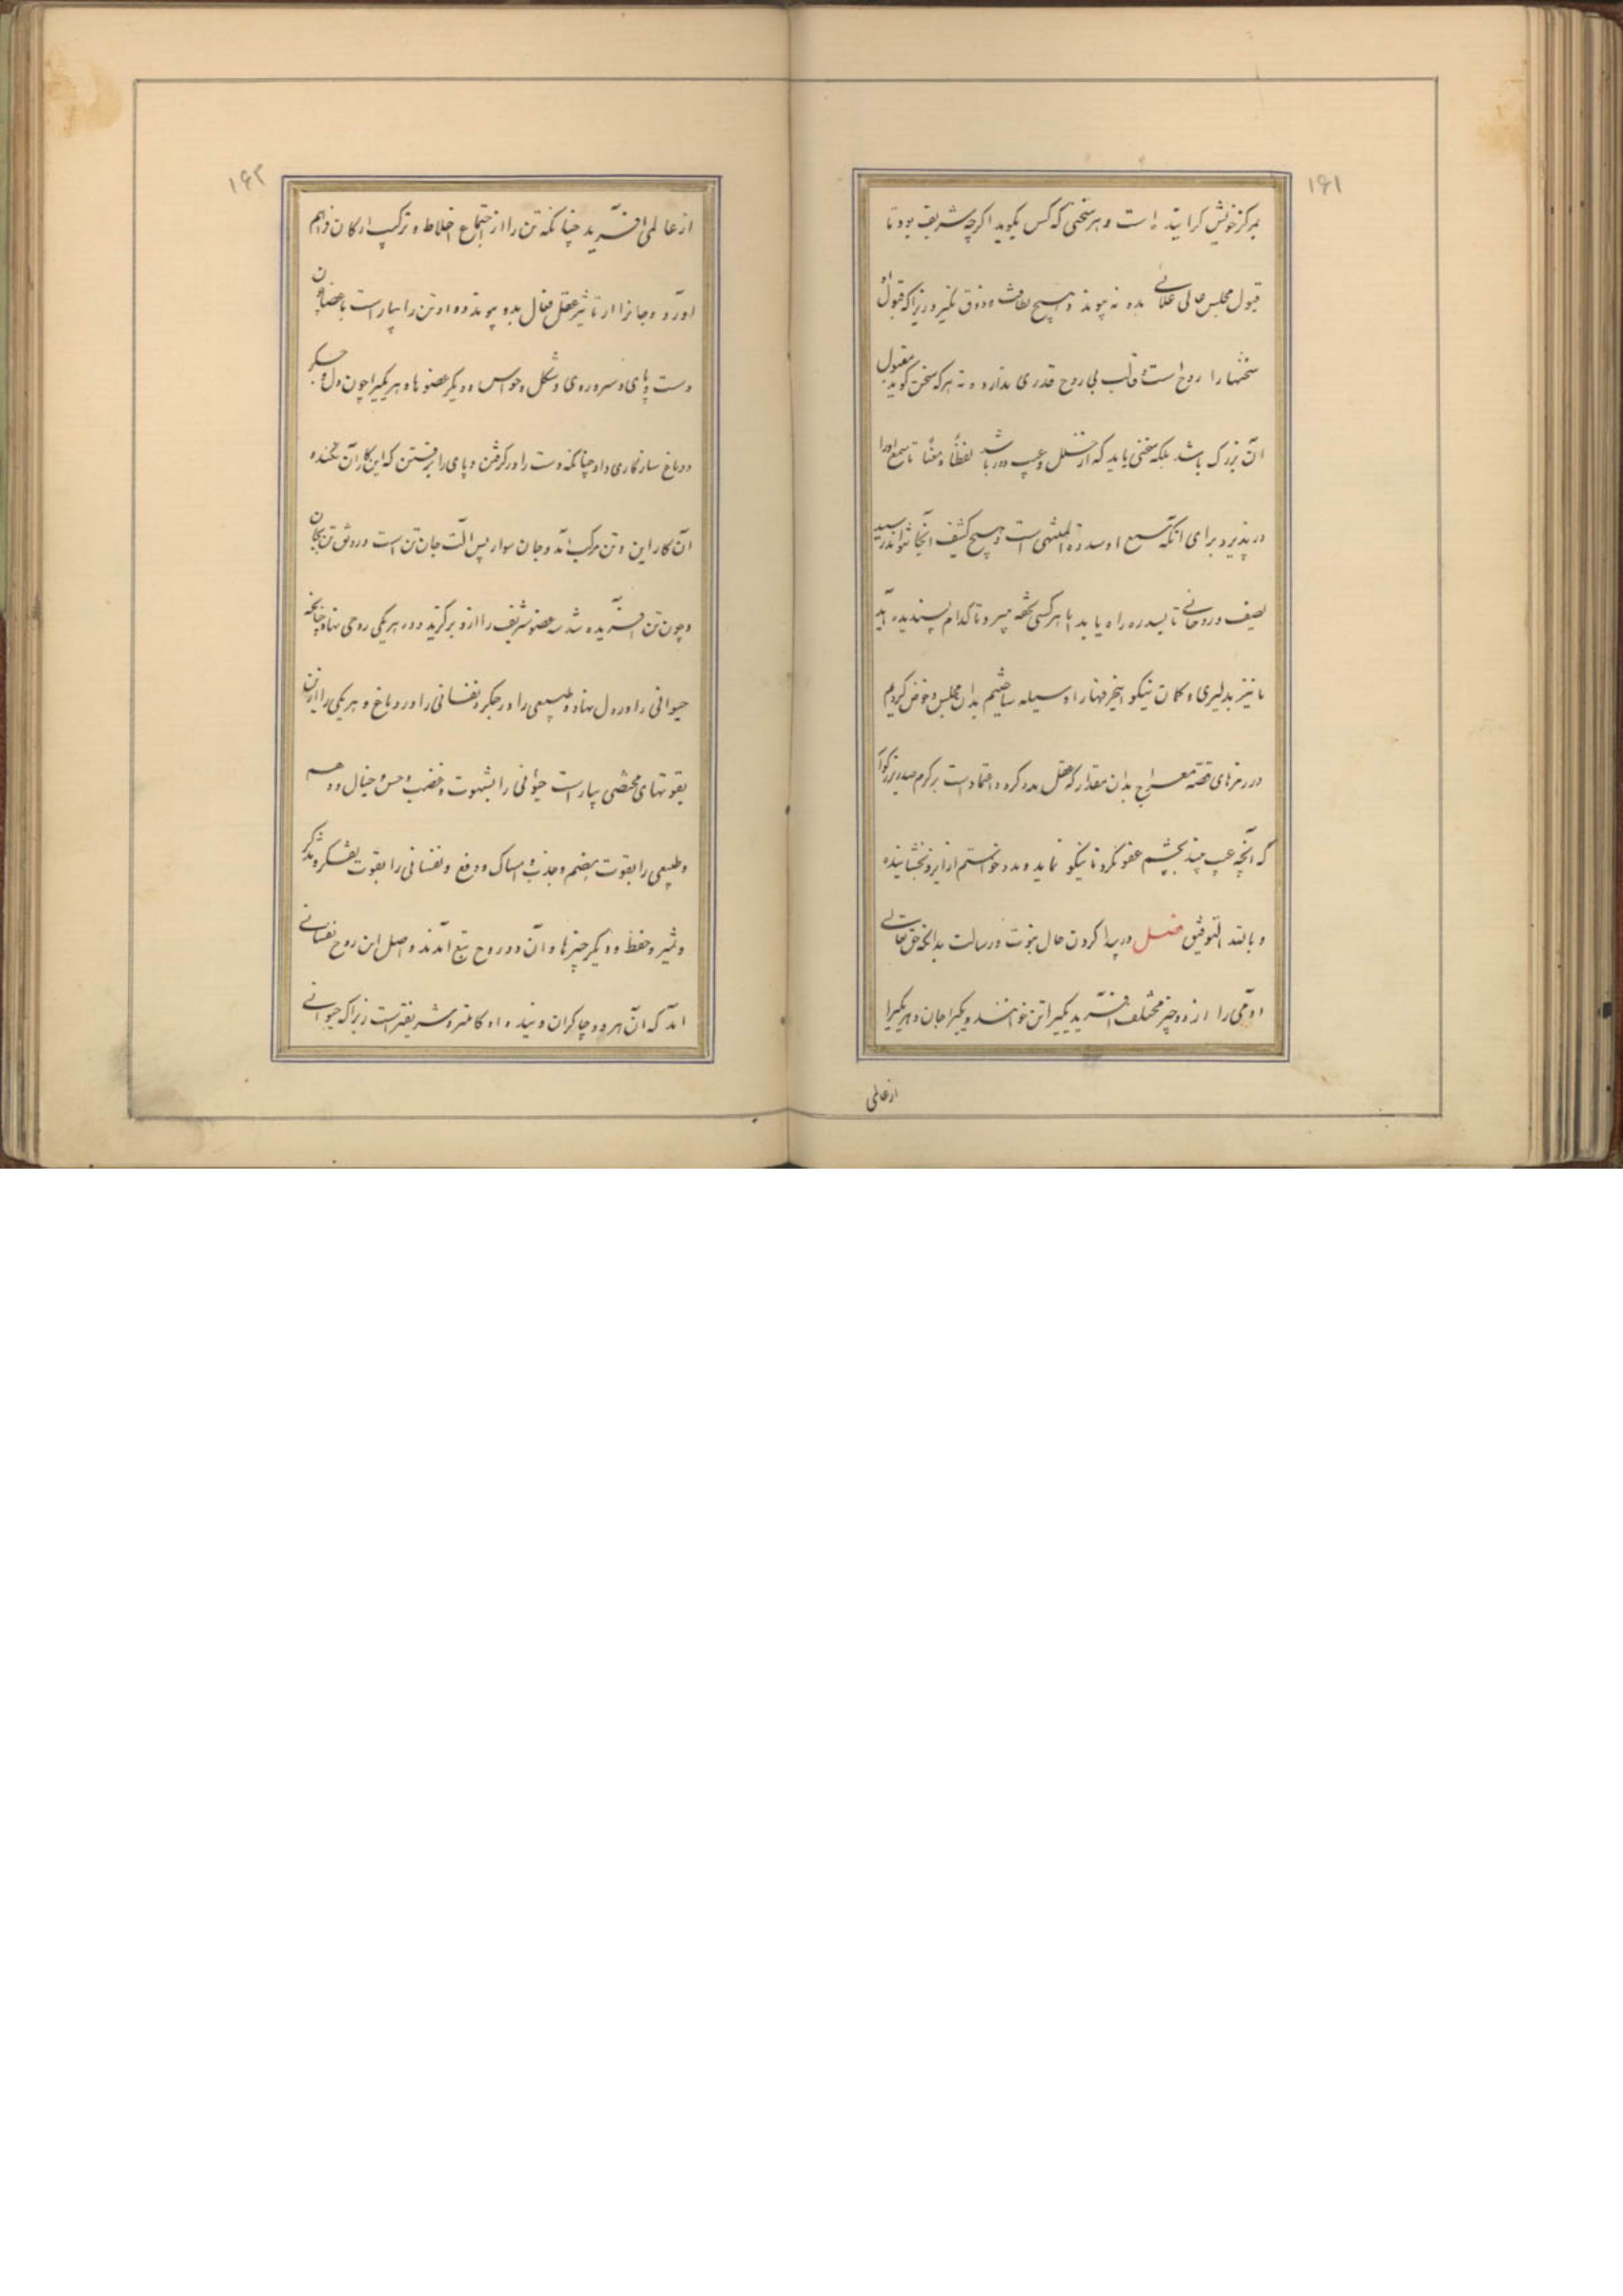 ۱۶۱
بمرکز خویش کراینده است و هر سخنی که کس بگوید اگرچه شریف بود تا
قبول مجلس عالی علائی بده نه پیوندد هیچ لطافت و ذوق نگیرد زیرا که قبول او
سخنها را روح است و قالب بی روح قدری ندارد و نه هر که سخن گوید مقبول
آن بزرک باشد بلکه سخنی باید که از خلل و عیب دور باشد لفظاً و معناً تا سمع او را
در پذیرد برای آنکه سمع او سدرة المنتهی است و هیچ کثیف آنجا نتواند رسید
لطیف و روحانی تا بسدره راه یابد با هر کسی تحفه میبرد تا کدام پسندیده آید
ما نیز بدلیری و کمان نیکو اینحرفها را وسیله ساختیم بدان مجلس و خوض کردیم
در رمزهای قصه معراج بدان مقدار که عقل مدد کرد و اعتمادست بر کرم صدر بزرکوار
که آنچه عیب بیند بچشم عفو نکرد تا نیکو نماید و مدد خواستم از ایزد بخشاینده
و بالله التوفیق فصل در پیدا کردن حال نبوت و رسالت بدانکه حق تعالی
آدمی را از دو چیز مختلف آفرید یکیرا تن خوانند و یکیرا جان و هر یکیرا
از عالمی
۱۶۲
از عالمی آفرید چنانکه تن را از اجتماع اخلاط و ترکیب ارکان فراهم
آورد و جانرا از تاثیر عقل فعال بدو پیوند داد و تن را بیاراست باعضا چون
دست و پای و سر و روی و شکل و حواس و دیگر عضوها و هر یکیرا چون دل و جکر
و دماغ سازگاری داد چنانکه دست را در کرفتن و پای را برفتن که این کار آن نکند و
آن کار این و تن مرکب آمد و جان سوار پس آلت جان تن است و رونق تن بجان
و چون تن آفریده شد سه عضو شریف را ازو برکزید و در هر یکی روحی نهاد چنانکه
حیوانی را در دل نهاد و طبیعی را در جکر و نفسانی را در دماغ و هر یکی را از این
بقوتهای مختص بیاراست حیوانی را بشهوت و غضب و حس و خیال و وهم
و طبیعی را بقوت هضم و جذب و امساک و دفع و نفسانی را بقوت تفکر و تذکر
و تمیز و حفظ و دیگر چیزها و آن دو روح تبع آمدند و اصل این روح نفسانی
آمد که آن هر دو چاکران ویند و او کاملتر و شریفترست زیرا که حیوانی